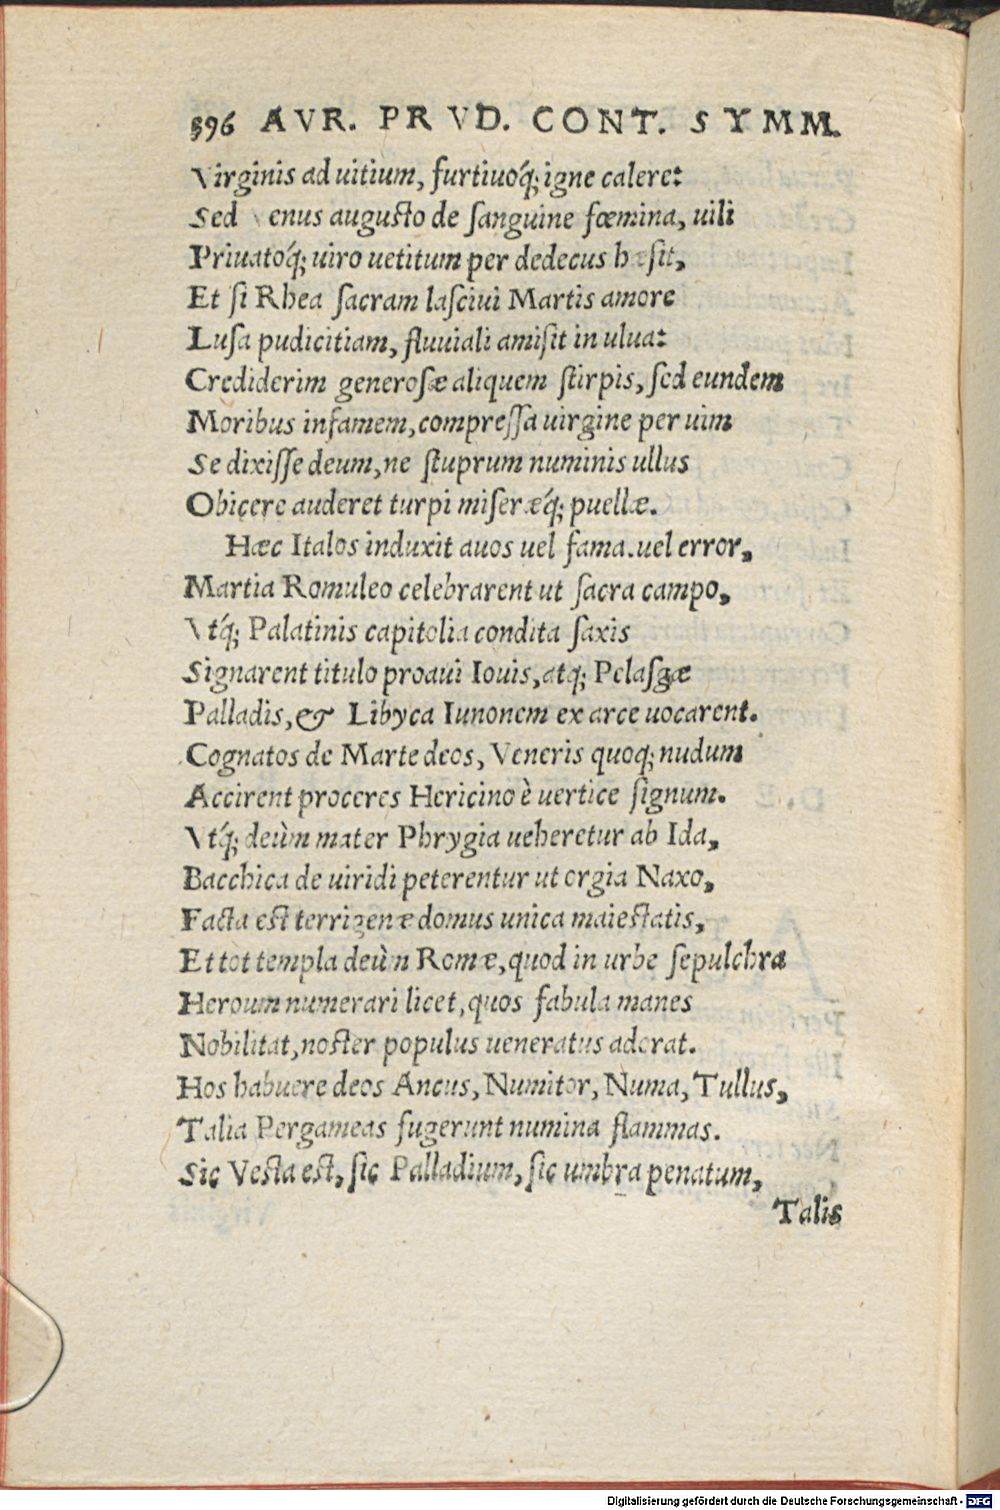 396 AVR. PRVD. CONT. SYMM.
Virginis ad uitium, furtiuoq́; igne caleret
Sed Venus augusto de ſanguine fœmina, uili
Priuatoq́; uiro uetitum per dedecus hæſit,
Et ſi Rhea ſacram laſciui Martis amore
Luſa pudicitiam, fluuiali amiſit in ulua:
Crediderim generoſæ aliquem ſtirpis, ſed eundem
Moribus infamem, compreſſa uirgine per uim
Se dixiſſe deum, ne ſtuprum numinis ullus
Obiçere auderet turpi miſeræq́; puellæ.
Hæc Italos induxit auos uel fama. uel error,
Martia Romuleo celebrarent ut ſacra campo,
Vtq́; Palatinis capitolia condita ſaxis
Signarent titulo proaui Iouis, atq; Pelaſgæ
Palladis, & Libyca Iunonem ex arce uocarent.
Cognatos de Marte deos, Veneris quoq; nudum
Accirent proceres Hericino è uertice ſignum.
Vtq́; deûm mater Phrygia ueheretur ab Ida,
Bacchica de uiridi peterentur ut orgia Naxo,
Facta est terrigenæ domus unica maiestatis,
Et tot templa deûm Romæ, quod in urbe ſepulchra
Heroum numerari licet, quos fabula manes
Nobilitat, noster populus ueneratus adorat.
Hos habuere deos Ancus, Numitor, Numa, Tullus,
Talia Pergameas fugerunt numina flammas.
Sic Vesta est, ſic Palladium, ſic umbra penatum,
Talis
Digitalisierung gefördert durch die Deutsche Forschungsgemeinschaft - DFG